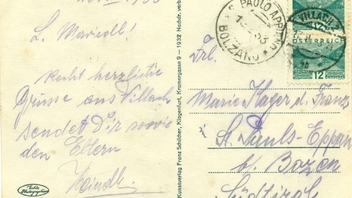 L. Mariedl!
Recht herzliche
Grüsse aus Villach
sendet Dir sowie
den Eltern
Heindl.
Echte Photographie
Kunstverlag Franz Schilcher, Klagenfurt, Kramergasse 9 — 1932 Nachdr. verboten
S. PAOLO APPIANO
BOLZANO
VILLACH
ÖSTERREICH
12
12
Frl.
Marie Mayer d. Franz
St. Pauls-Eppan
b. Bozen
Südtirol